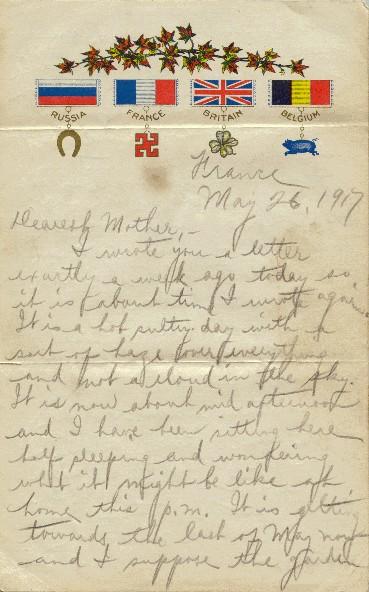 RUSSIA FRANCE BRITAIN BELGIUM
France
May 26, 1917
Dearest Mother,-
I wrote you a letter
exactly a week ago today so
it is about time I wrote again.
It is a hot sultry day with a
sort of haze over everything
and not a cloud in the sky.
It is now about mid afternoon
and I have been sitting here
half sleeping and wondering
what it might be like at
home this p.m. It is getting
towards the last of May now
and I suppose the garden